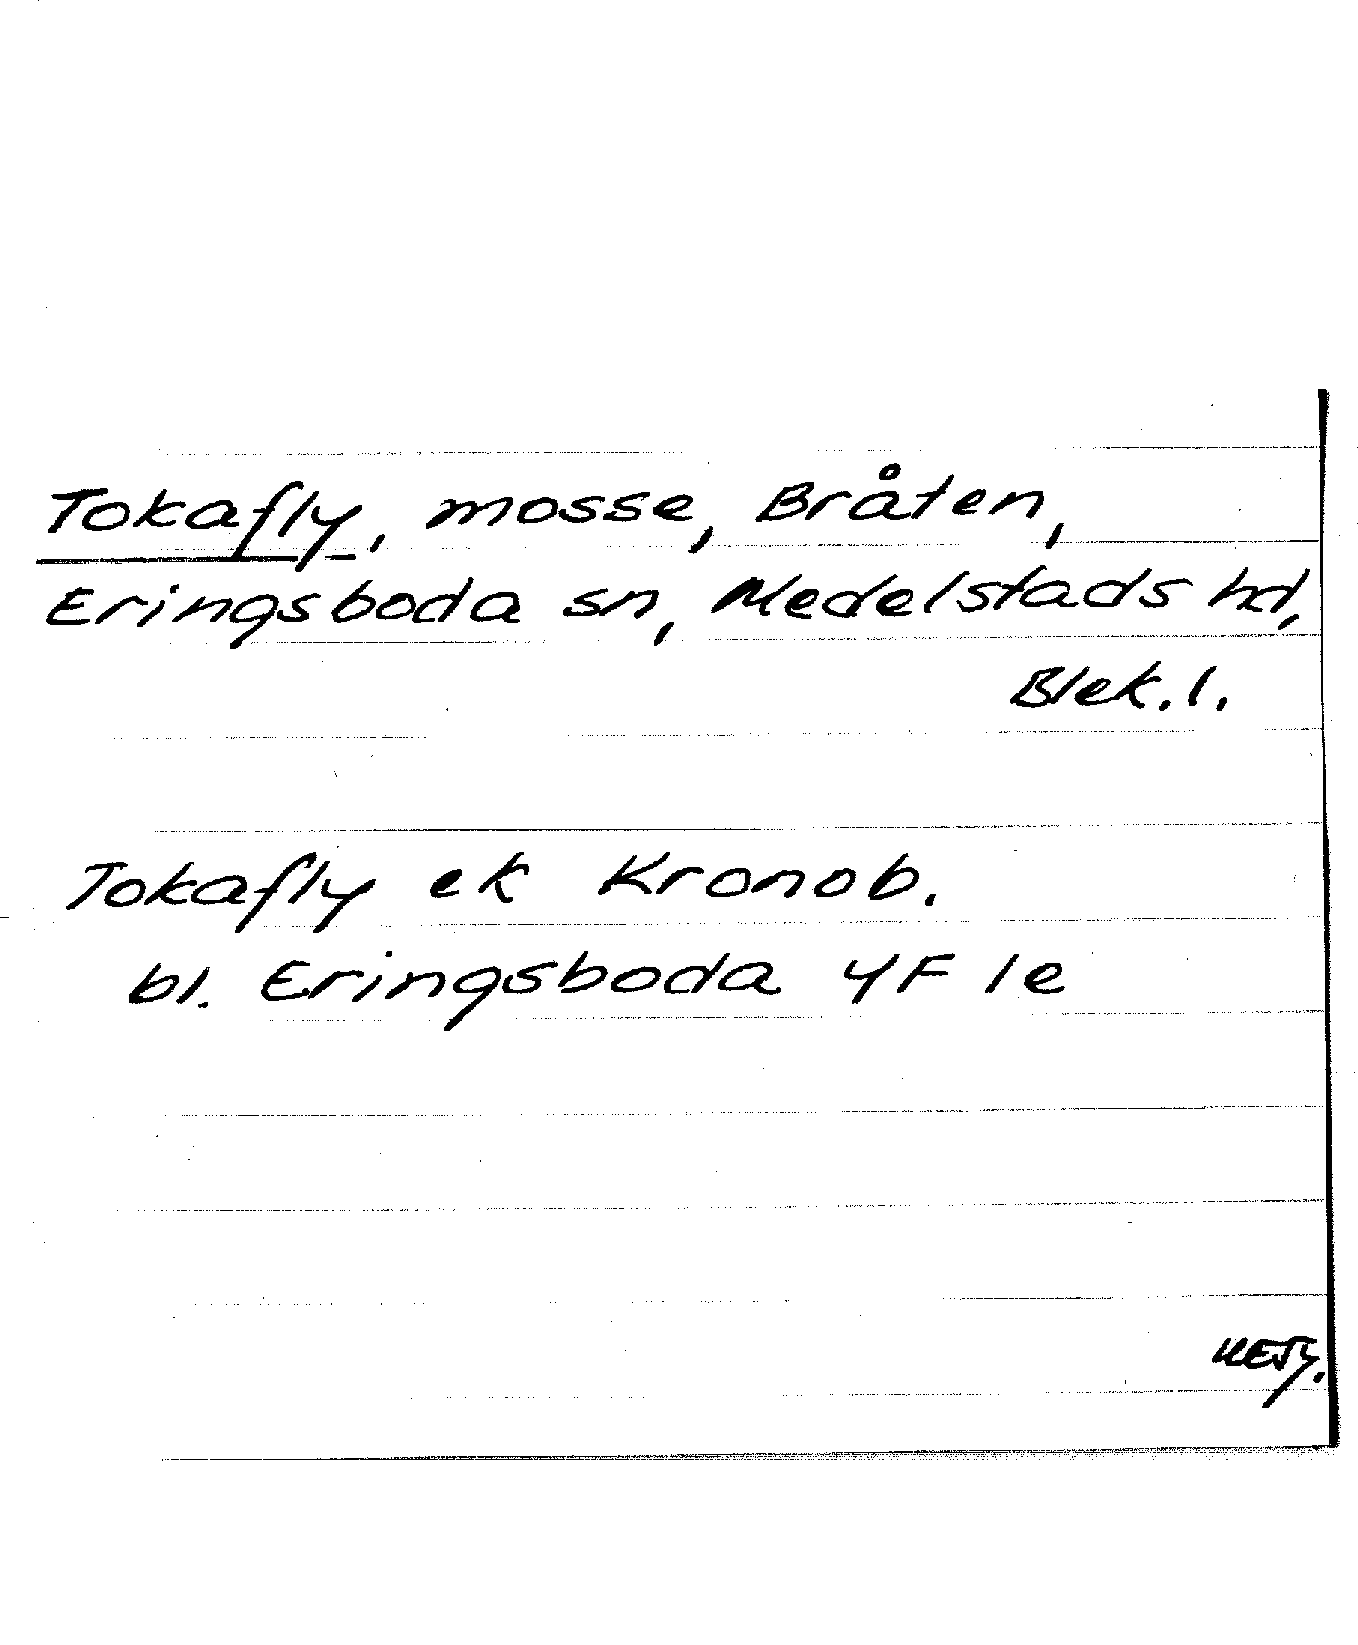 Tokafly, mosse, Bråten,
Eringsboda sn, Medelstads hd,
Blek. l.
Tokafly ek Kronob.
bl. Eringsboda 4F 1e